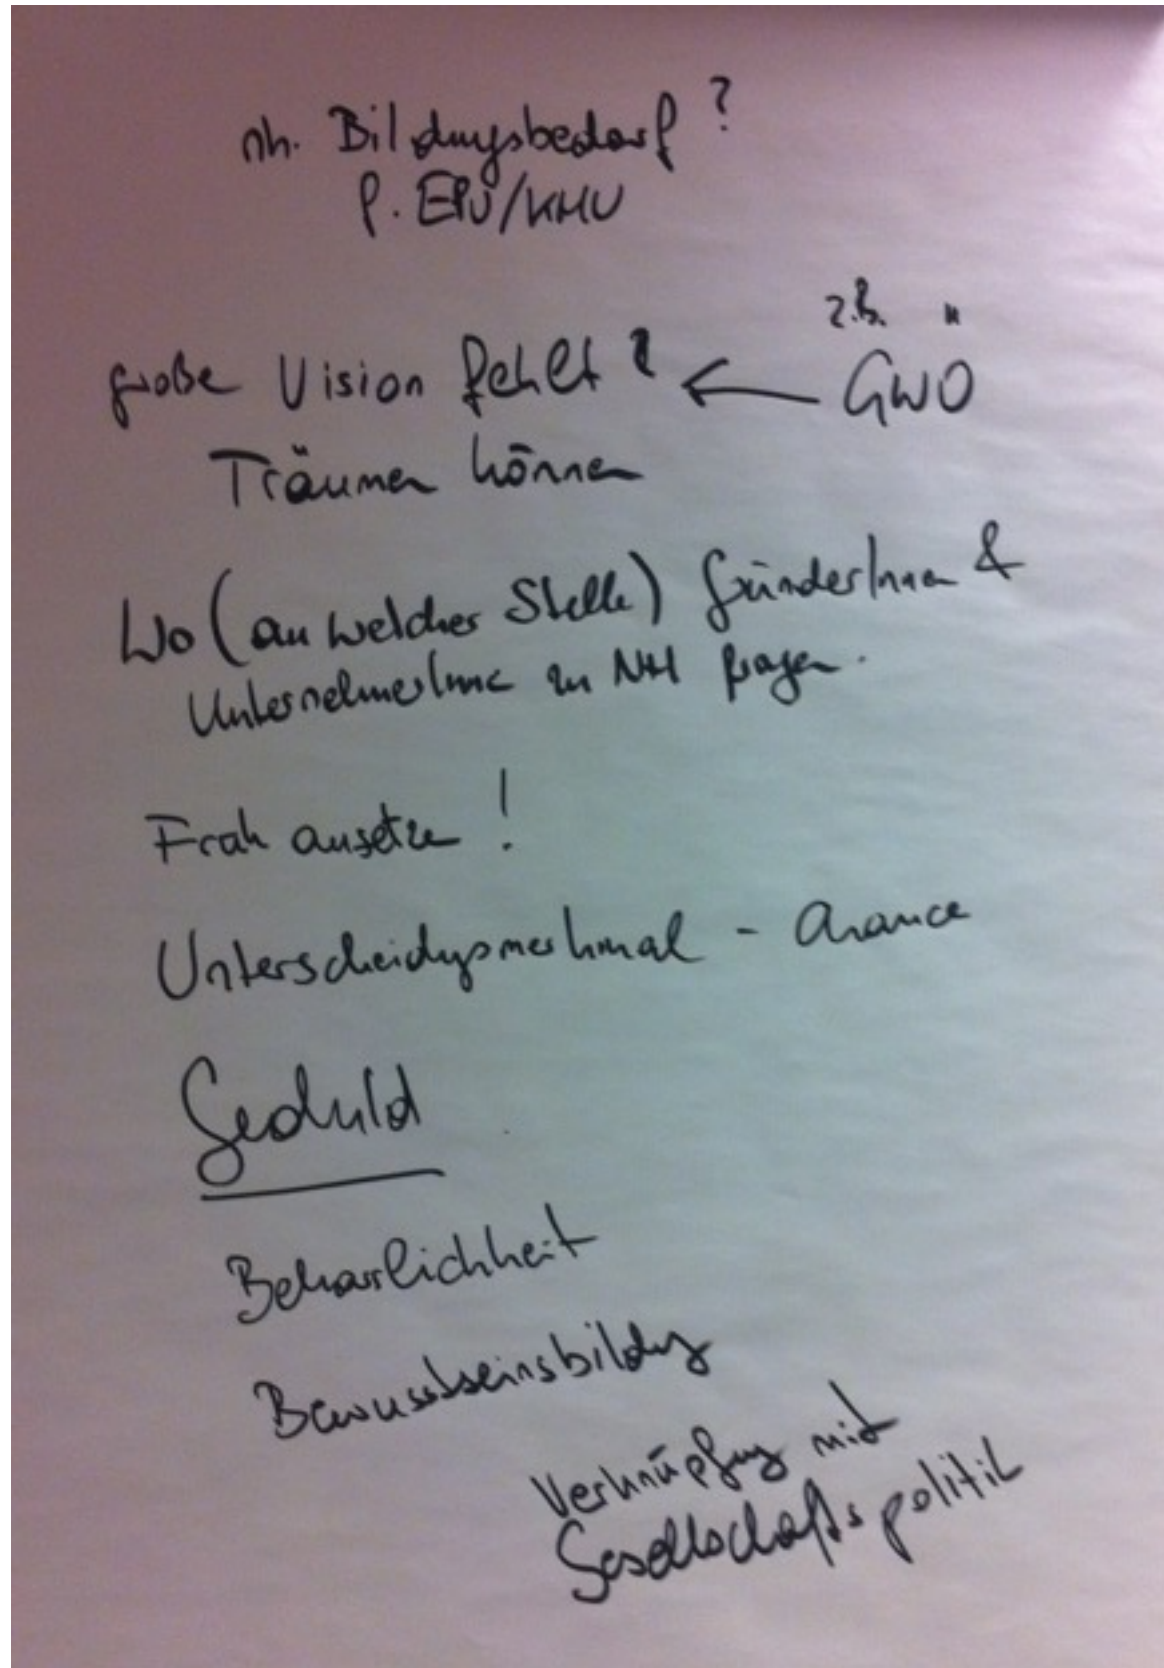 nh. Bildungsbedarf?
f. EPU/KMU
z.B.
große Vision fehlt? ← GWÖ
Träumen können
Wo (an welcher Stelle) GründerInnen &
UnternehmerInne zu NH fragen.
Früh ansetzen!
Unterscheidungsmerkmal - Chance
Geduld
Beharrlichkeit
Bewusstseinsbildung
Verknüpfung mit
Gesellschaftspolitik